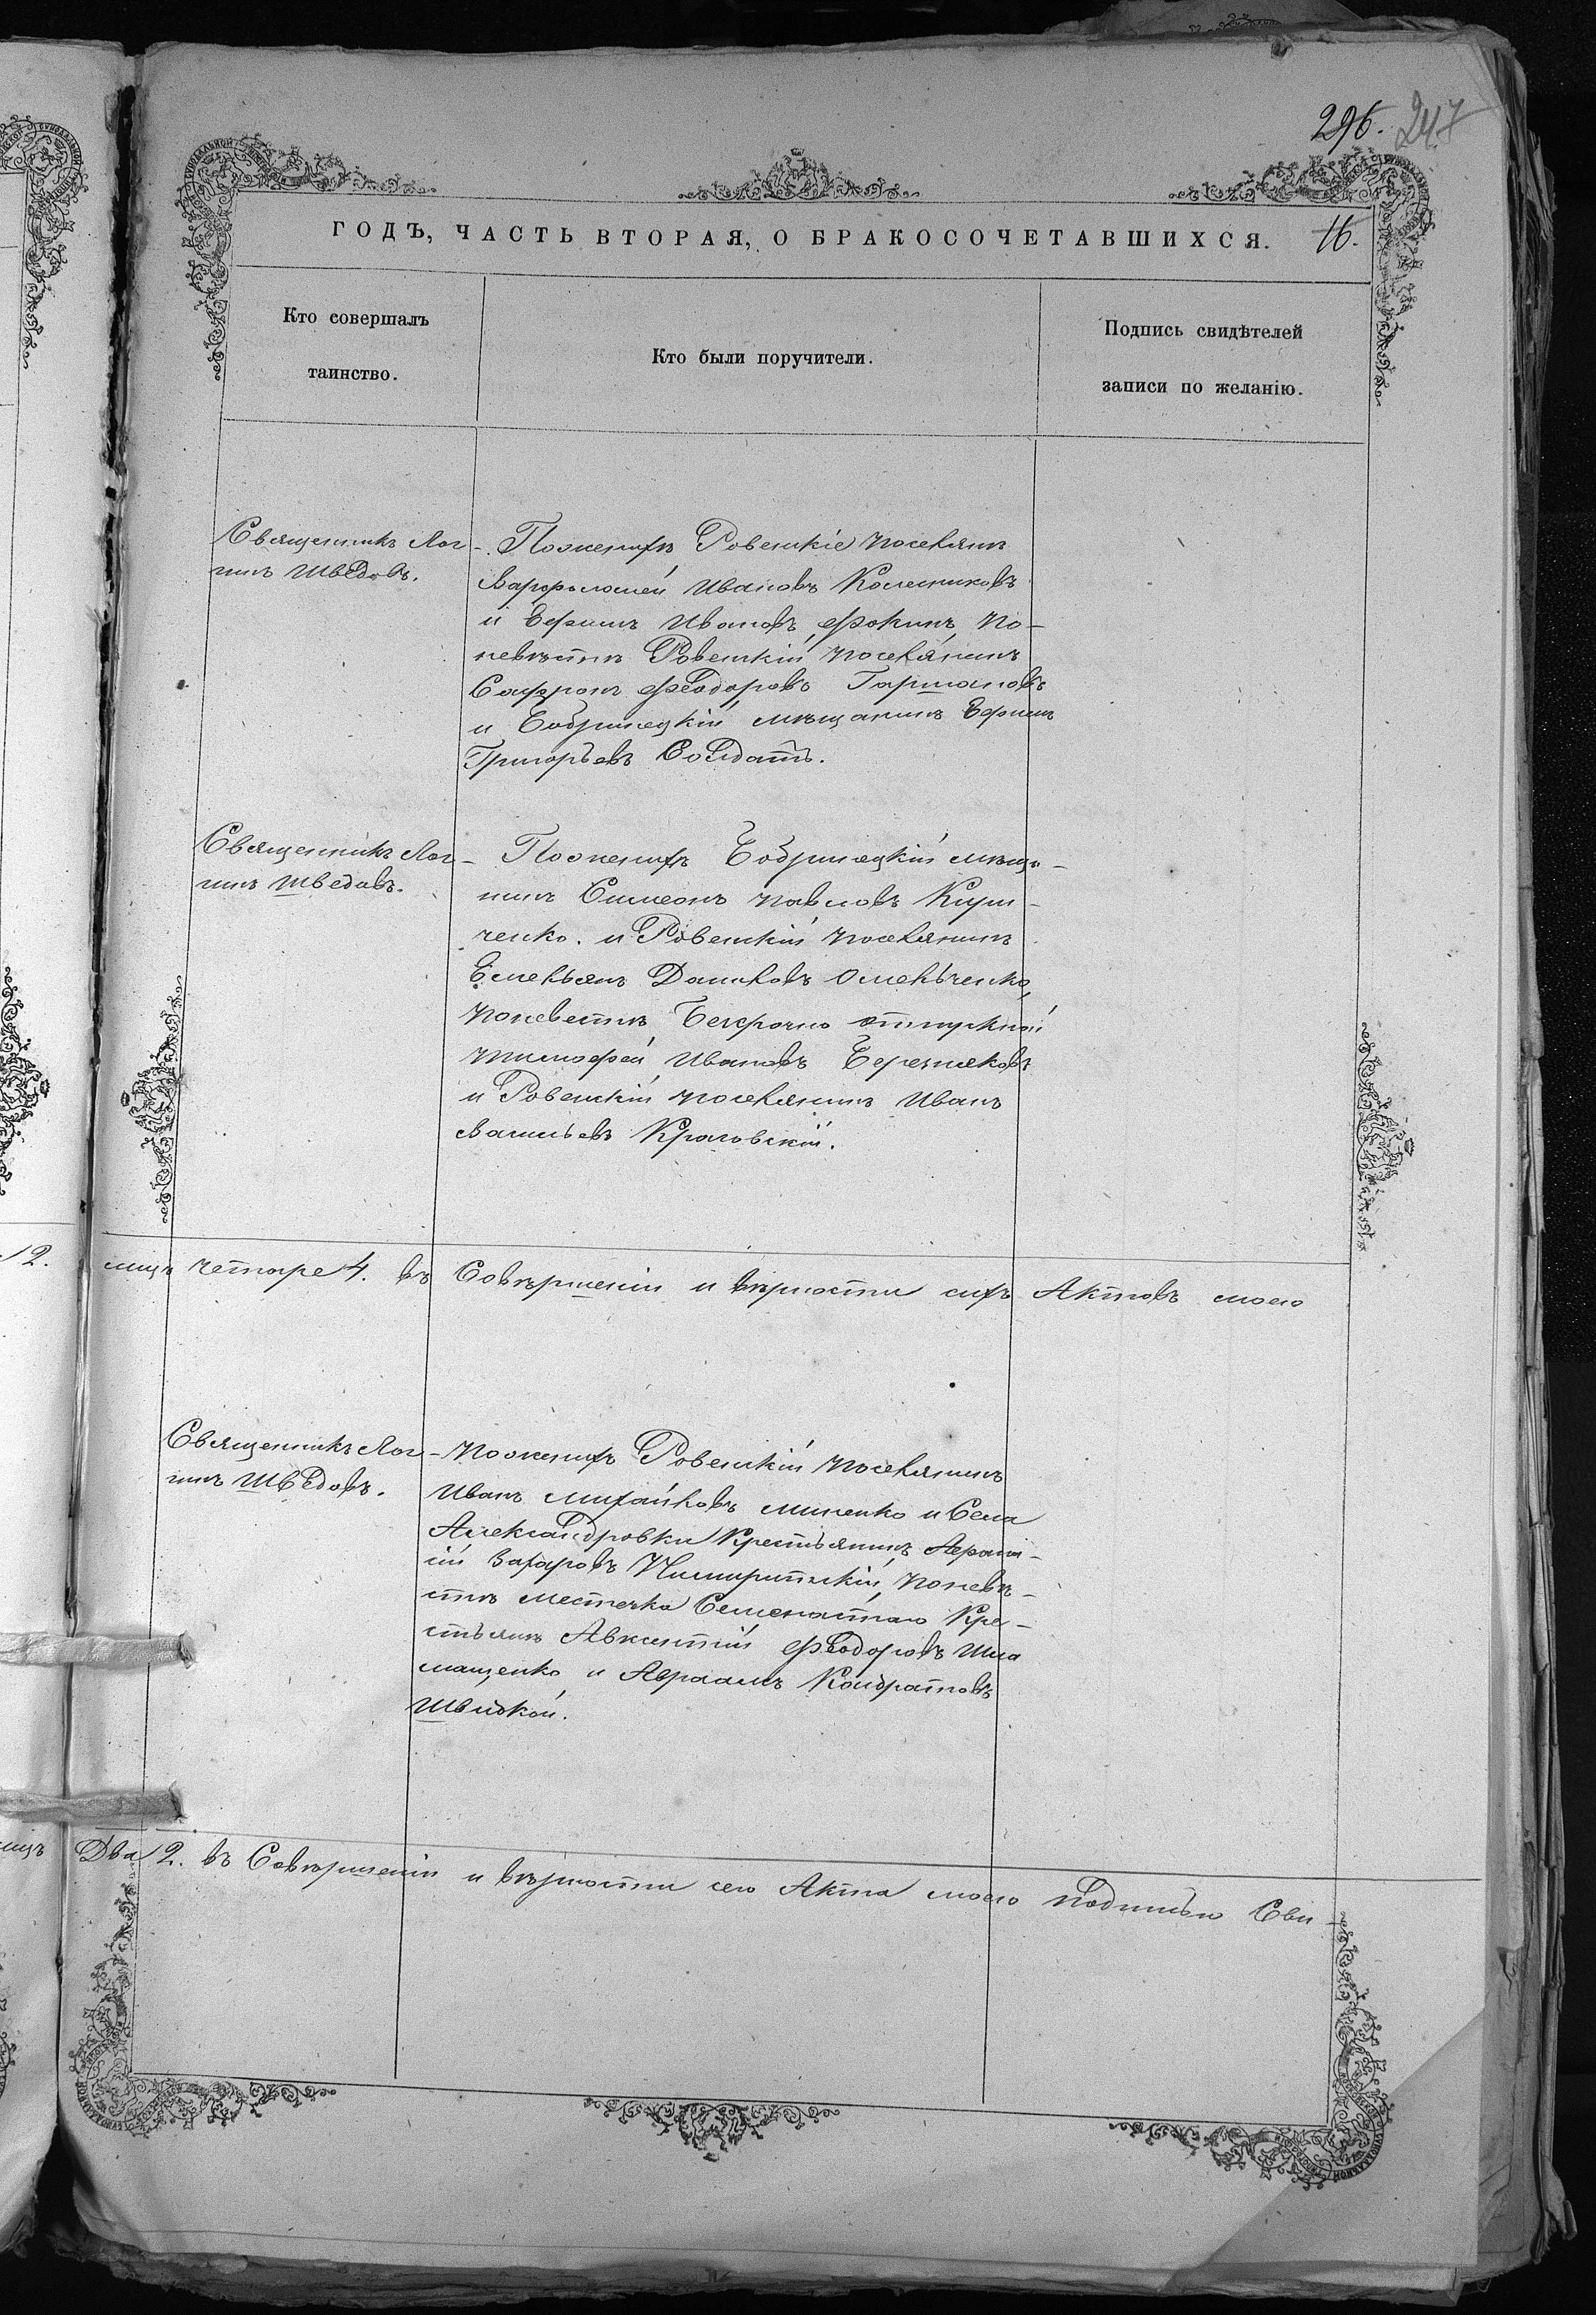 296. 247
ГОДЪ, ЧАСТЬ ВТОРАЯ, О БРАКОСОЧЕТАВШИХСЯ. 16.
Кто совершалъ
таинство.
Кто были поручители.
Подпись свидѣтелей
записи по желанію.
Священникъ Лог-
гинъ Шведовъ.
Поженихѣ Ровенскіе поселяне
Варфоломей Ивановъ Колесниковъ
и Ефимъ Ивановъ Фокинъ, по-
невѣстѣ Ровенскій поселянинъ
Софронъ Феодоровъ
и Бобринецкій мѣщанинъ Ефимъ
Григорьевъ Солдатъ.
Священникъ Лог-
гинъ Шведовъ.
Поженихѣ Бобринецкій мѣща-
нинъ Симеонъ Павловъ Кири-
ченко. и Ровенскій поселянинъ
Емельянъ Даниловъ Омельченко,
поневестѣ Безсрочно отпускной
Тимофей Ивановъ Березняковъ
и Ровенскій поселянинъ Иванъ
Васильевъ
12.
лицъ четыре 4. въ Совѣршеніи и вѣрности сихъ Актовъ моею
Священникъ Лог-
гинъ Шведовъ.
Поженихѣ Ровенскій поселянинъ
Иванъ Михайловъ Миненко и Села
Александровки Крестьянинъ Афана-
сій Захаровъ поневѣ-
стѣ местечка Семенастаго Кре-
стьяне Авксентій Феодоровъ
и Авраамъ Кондратовъ
Швидкой.
лицъ Два 2. въ Совѣршеніи и вѣрности сего Акта моею подписью Сви-